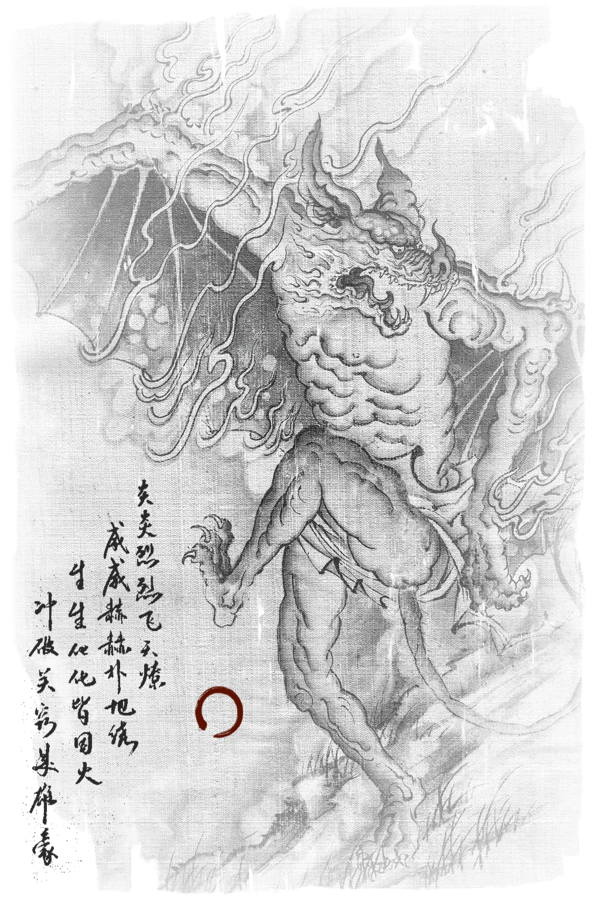 炎炎烈烈飞天燎
威威赫赫扑地烧
生生化化皆因火
冲破关窍是雄豪